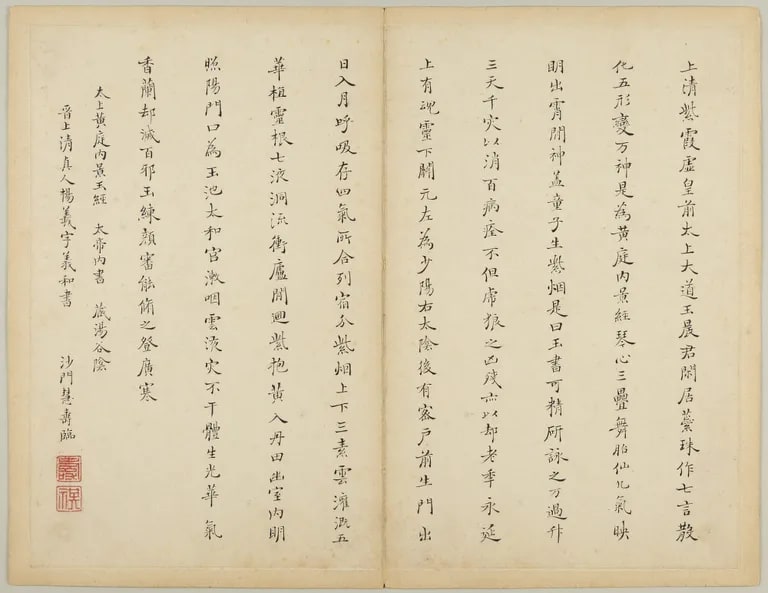 上清紫霞虛皇前太上大道玉晨君閑居蘂珠作七言散
化五形變万神是為黃庭內景經琴心三疊舞胎仙九氣映
明出霄間神蓋童子生紫烟是曰玉書可精研詠之万過升
三天千灾以消百病痊不但虎狼之凶殘亦以却老年永延
上有魂靈下關元左為少陽右太陰後有密戶前生門出
日入月呼吸存四氣所合列宿分紫烟上下三素雲灌溉五
華植靈根七液洞流衝廬間迴紫抱黃入丹田幽室內明
照陽門口為玉池太和官漱咽靈液灾不干體生光華氣
香蘭却滅百邪玉練顏審能脩之登廣寒
太上黃庭內景玉經 太帝內書 藏湯谷陰
晉上清真人楊羲字羲和書 沙門慧壽臨